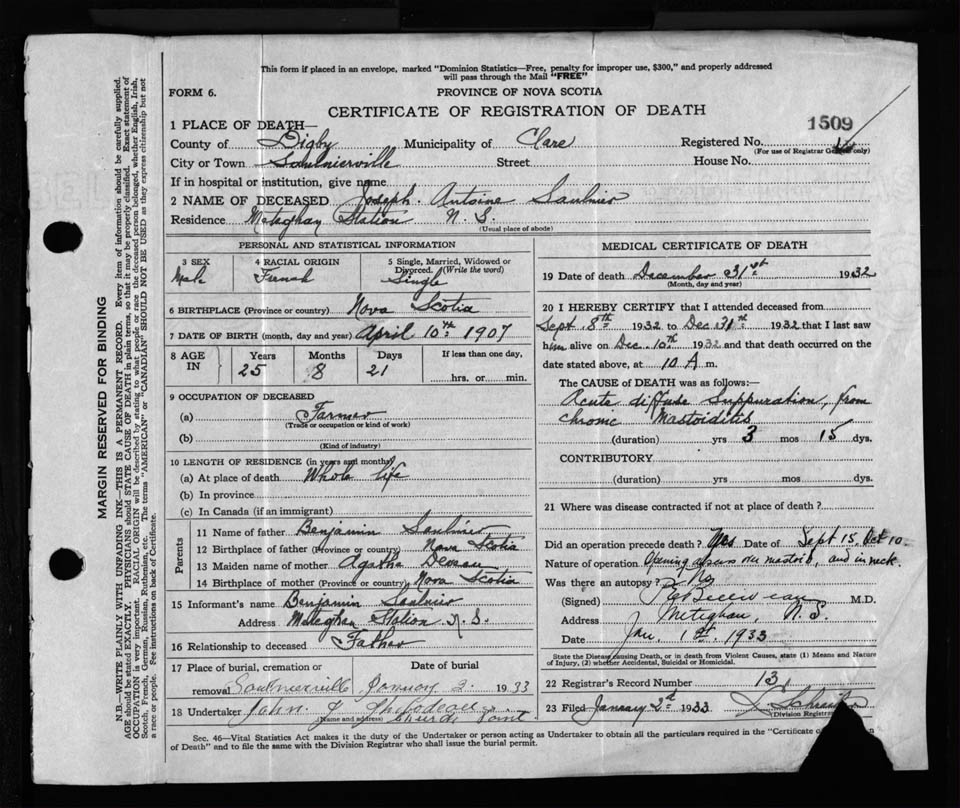 This form if placed in an envelope, marked "Dominion Statistics—Free, penalty for improper use, $300," and properly addressed
will pass through the Mail "FREE"
FORM 6. PROVINCE OF NOVA SCOTIA
CERTIFICATE OF REGISTRATION OF DEATH
1509
1 PLACE OF DEATH—
County of Digby Municipality of Clare Registered No.
(For use of Registrar General only)
City or Town Saulnierville Street House No.
If in hospital or institution, give name
2 NAME OF DECEASED Joseph Antoine Saulnier
Residence Meteghan Station N. S.
(Usual place of abode)
PERSONAL AND STATISTICAL INFORMATION
3 SEX 4 RACIAL ORIGIN 5 Single, Married, Widowed or
Divorced. (Write the word)
Male French Single
6 BIRTHPLACE (Province or country) Nova Scotia
7 DATE OF BIRTH (month, day and year) April 10th 1907
8 AGE IN Years Months Days If less than one day,
25 8 21 hrs. or min.
9 OCCUPATION OF DECEASED
(a) Farmer
(Trade or occupation or kind of work)
(b)
(Kind of industry)
10 LENGTH OF RESIDENCE (in years and months)
(a) At place of death Whole life
(b) In province
(c) In Canada (if an immigrant)
Parents
11 Name of father Benjamin Saulnier
12 Birthplace of father (Province or country) Nova Scotia
13 Maiden name of mother Agatha
14 Birthplace of mother (Province or country) Nova Scotia
15 Informant's name Benjamin Saulnier
Address Meteghan Station N. S.
16 Relationship to deceased Father
17 Place of burial, cremation or Date of burial
removal Saulnierville January 2. 1933
18 Undertaker John Thibodeau
(name and address) Church Point
MEDICAL CERTIFICATE OF DEATH
19 Date of death December 31st 1932
(Month, day and year)
20 I HEREBY CERTIFY that I attended deceased from
Sept 8th 1932 to Dec 31st 1932 that I last saw
him alive on Dec. 10th 1932 and that death occurred on the
date stated above, at 10 A m.
The CAUSE of DEATH was as follows:—
Acute diffuse Suppuration, from
chronic Mastoiditis
(duration) yrs 3 mos 15 dys.
CONTRIBUTORY
(duration) yrs mos dys.
21 Where was disease contracted if not at place of death?
Did an operation precede death? Yes Date of Sept 15, Oct 10
Nature of operation Opening mastoid, and in neck.
Was there an autopsy? No
(Signed) M.D.
Address Meteghan, N. S.
Date Jan. 1st. 1933
State the Disease causing Death, or in death from Violent Causes, state (1) Means and Nature
of Injury, (2) whether Accidental, Suicidal or Homicidal.
22 Registrar's Record Number 13
23 Filed January 2d 1933
(Division Registrar)
Sec. 46—Vital Statistics Act makes it the duty of the Undertaker or person acting as Undertaker to obtain all the particulars required in the "Certificate of
of Death" and to file the same with the Division Registrar who shall issue the burial permit.
MARGIN RESERVED FOR BINDING
N.B.—WRITE PLAINLY WITH UNFADING INK—THIS IS A PERMANENT RECORD. Every item of information should be carefully supplied.
AGE should be stated EXACTLY. PHYSICIANS should STATE CAUSE OF DEATH in plain terms, so that it may be properly classified. Exact statement of
OCCUPATION is very important. RACIAL ORIGIN will be described by stating to what people or race the deceased person belonged, whether English, Irish,
Scotch, French, German, Russian, Ruthenian, etc. The terms "AMERICAN" or "CANADIAN" SHOULD NOT BE USED as they express citizenship but not
a race or people. See instructions on back of Certificate.